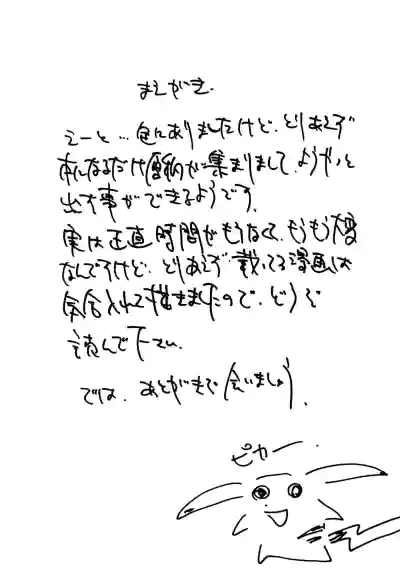 まえがき.
えーと…色々ありましたけど、とりあえず
本になるだけ原稿が集まりまして、ようやっと
出す事ができるようです。
実は正直時間がもうなくて、もうもう大変
なんですけど、とりあえず載ってる漫画は
気合入れて描きましたので、どうぞ
読んで下さい。
では、あとがきで会いましょう
ピカー.